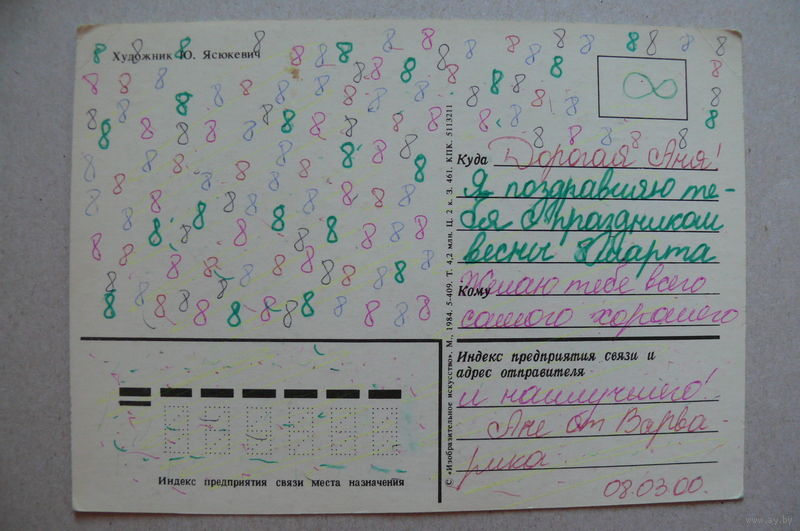 Художник Ю. Ясюкевич
Куда Дорогая Аня!
Я поздравляю те-
бя с праздником
весны 8 Марта
Кому Желаю тебе всего
самого хорошего
Индекс предприятия связи и
адрес отправителя
и наилучшего!
Ане от Варва-
рика
08.03.00.
Индекс предприятия связи места назначения
© «Изобразительное искусство». М., 1984. 5-409. Т. 4,2 млн. Ц. 2 к. З. 461. КПК. 5113211
www.ay.by